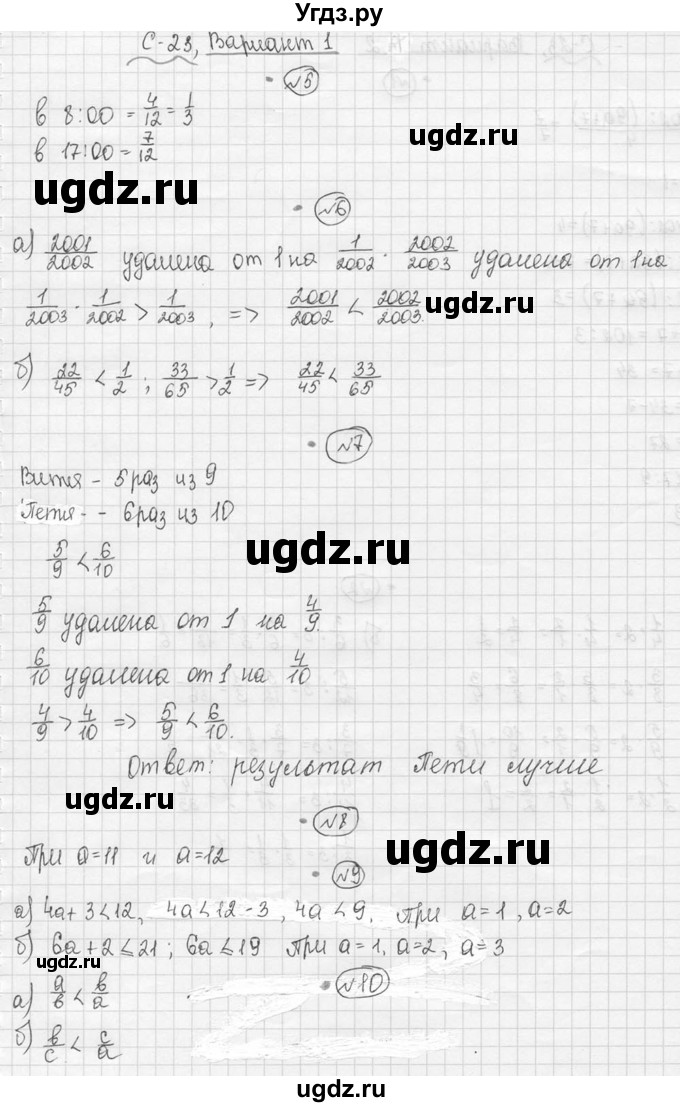 Угдз.ру
С-23, Вариант 1
№5
в 8:00 = 4/12 = 1/3
в 17:00 = 7/12
ugdz.ru
ugdz.ru
№6
а) 2001/2002 удалена от 1 на 1/2002 · 2002/2003 удалена от 1 на
1/2003 · 1/2002 > 1/2003, => 2001/2002 < 2002/2003.
б) 22/45 < 1/2 ; 33/65 > 1/2 => 22/45 < 33/65
№7
Витя - 5 раз из 9
Петя - - 6 раз из 10
ugdz.ru
ugdz.ru
5/9 < 6/10
5/9 удалена от 1 на 4/9.
6/10 удалена от 1 на 4/10
4/9 > 4/10 => 5/9 < 6/10.
Ответ: результат Пети лучше
ugdz.ru
№8
При a=11 и a=12
ugdz.ru
№9
а) 4a+3<12, 4a<12-3, 4a<9. при a=1, a=2
б) 6a+2≤21; 6a≤19 при a=1, a=2, a=3
ugdz.ru
№10
а) a/b < b/a
б) b/c < c/a
ugdz.ru